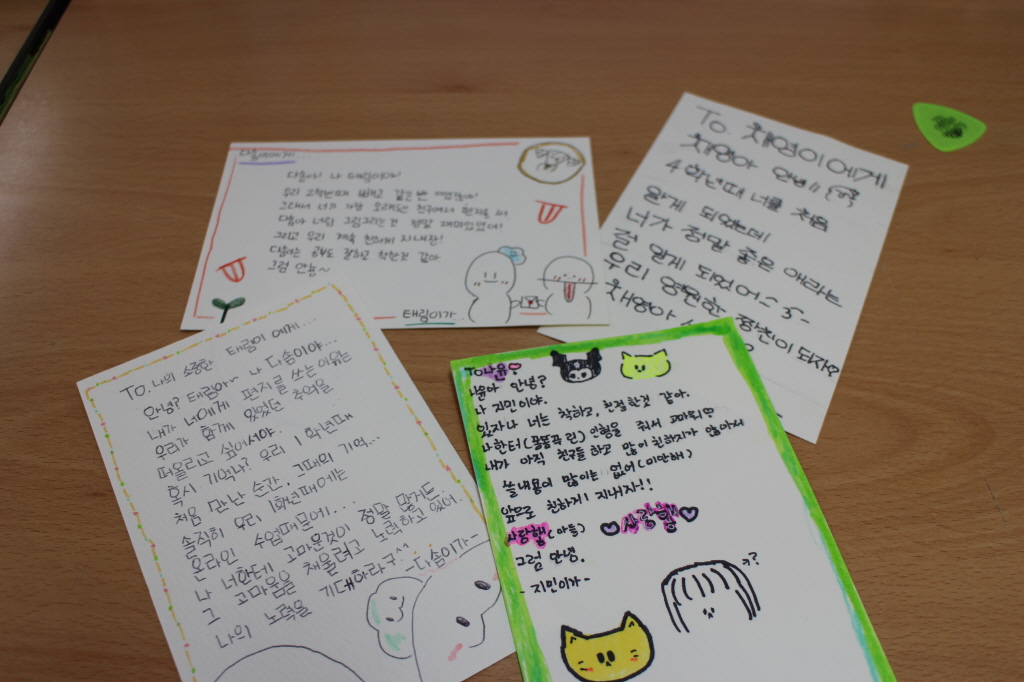 다솜이에게...
다솜아! 나 태림이야!
우리 2학년때 빼고 같은 반
그래서 너가 가장 오래된 친구여서 편지를 써
다솜아 너랑 그림그리는 것 정말 재미있었어!
그리고 우리 계속 친하게 지내장!
다솜이는 공부도 잘하고 착한것 같아
그럼 안뇽~
태림이가...
To. 채영이에게
채영아 안녕!!
4학년때 너를 처음
알게 되었는데
너가 정말 좋은 애라는
걸 알게 되었어
우리 영원한 찐친이 되자?
채영아
TO. 나의 소중한 태림이 에게...
안녕? 태림아~ 나 다솜이야...
내가 너에게 편지를 쓰는 이유는
우리가 함께 있었던 추억을
떠올리고 싶어서야.
혹시 기억나? 우리 1학년때
처음 만난 순간, 그때의 기억...
솔직히 우리 1학년때에는
온라인 수업때문에...
나 너한테 고마운것이 정말 많거든
그 고마움을 채울려고 노력하고 있어.
나의 노력을 기대하라구^^
-다솜이가-
To나윤♡
나윤아 안녕?
나 지민이야.
있잖아 너는 착하고, 친절한것 같아.
나한터( 린) 인형을 줘서 고마워
내가 아직 친구들하고 많이 친하지가 않아서
쓸내용이 많이는 없어(미안해)
앞으로 친하게 지내자!!
사랑햅(아들) ♡사랑햅♡
그럼 안녕.
-지민이가-
??